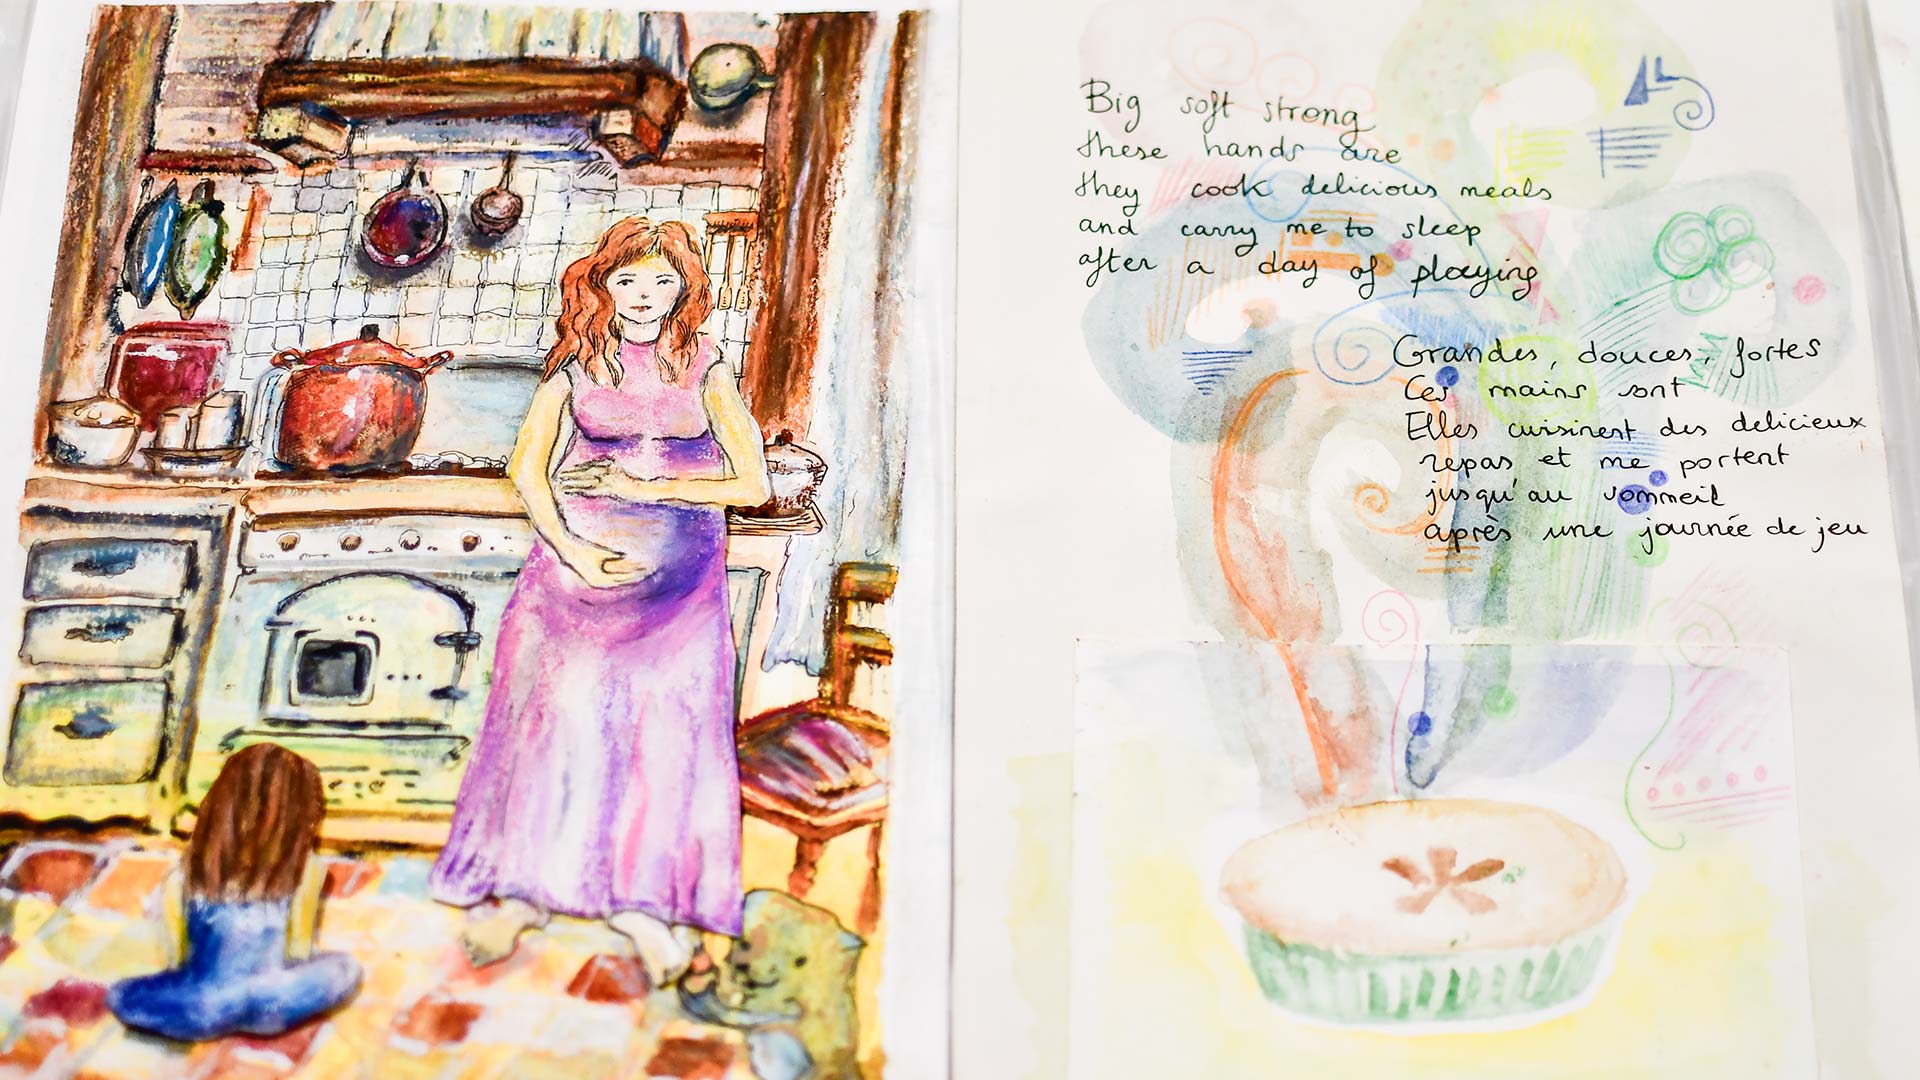 Big soft strong
these hands are
they cook delicious meals
and carry me to sleep
after a day of playing
Grandes, douces, fortes
Ces mains sont
Elles cuisinent des delicieux
repas et me portent
jusqu'au sommeil
après une journée de jeu